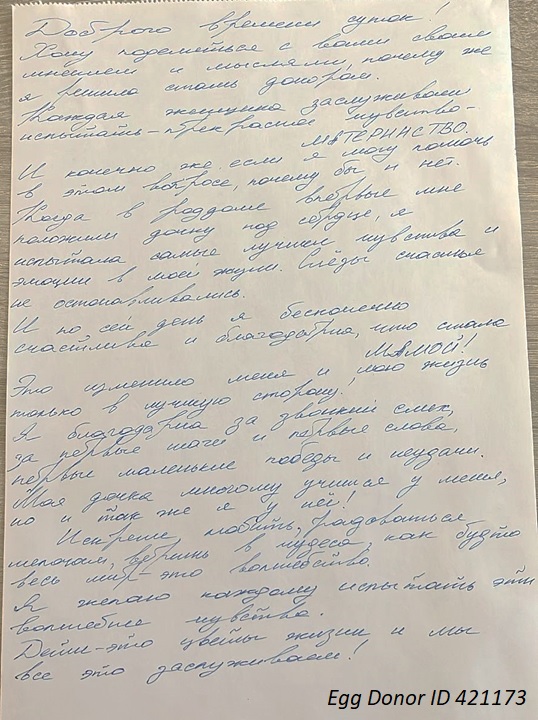 Доброго времени суток!
Хочу поделиться с вами своим
мнением и мыслями, почему же
я решила стать донором.
Каждая женщина заслуживает
испытать - прекрасное чувство -
МАТЕРИНСТВО.
И конечно же если я могу помочь
в этом вопросе, почему бы и нет.
Когда в роддоме впервые мне
положили дочку под сердце, я
испытала самые лучшие чувства и
эмоции в моей жизни. Слёзы счастья
не останавливались.
И по сей день я бесконечно
счастлива и благодарна, что стала
МАМОЙ!
Это изменило меня и мою жизнь
только в лучшую сторону!
Я благодарна за звонкий смех,
за первые шаги и первые слова,
первые маленькие победы и неудачи.
Моя дочка многому учится у меня,
но и так же я у неё!
Искренне любить, радоваться
мелочам, верить в чудеса, как будто
весь мир - это волшебство.
Я желаю каждому испытать эти
волшебные чувства.
Дети - это цветы жизни и мы
все это заслуживаем!
Egg Donor ID 421173